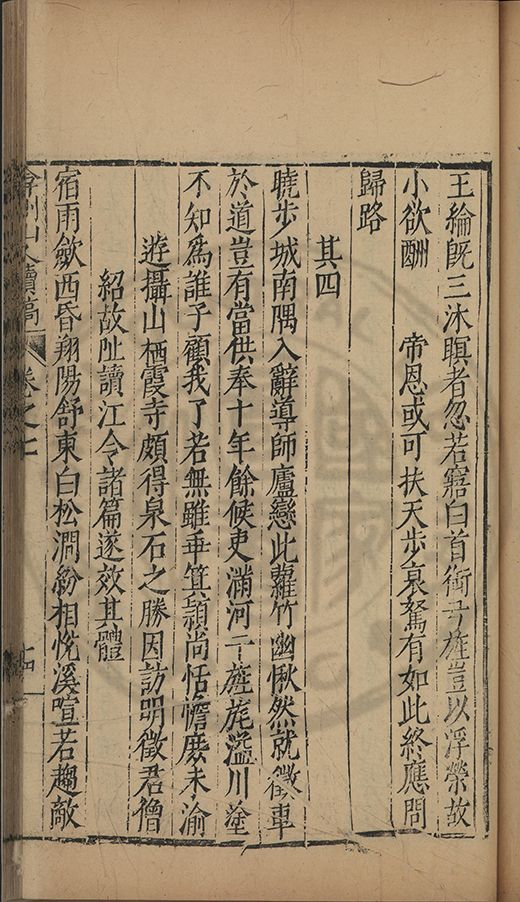 王綸既三沐瞑者忽若寤白首銜孑旌豈以浮榮故
小欲酬　帝恩或可扶天步哀駑有如此終應問
歸路
其四
曉步城南隅入辭導師廬戀此蘿竹幽愀然就徵車
於道豈有當供奉十年餘候吏滿河干旌旄溢川塗
不知爲誰子顧我了若無雖垂箕潁尚恬憺庶未渝
遊攝山栖霞寺頗得泉石之勝因訪明徵君僧
紹故阯讀江令諸篇遂效其體
宿雨斂西昏翔陽舒東白松澗紛相悅溪喧若趨敵
弇州山人續稿 卷之七 十四